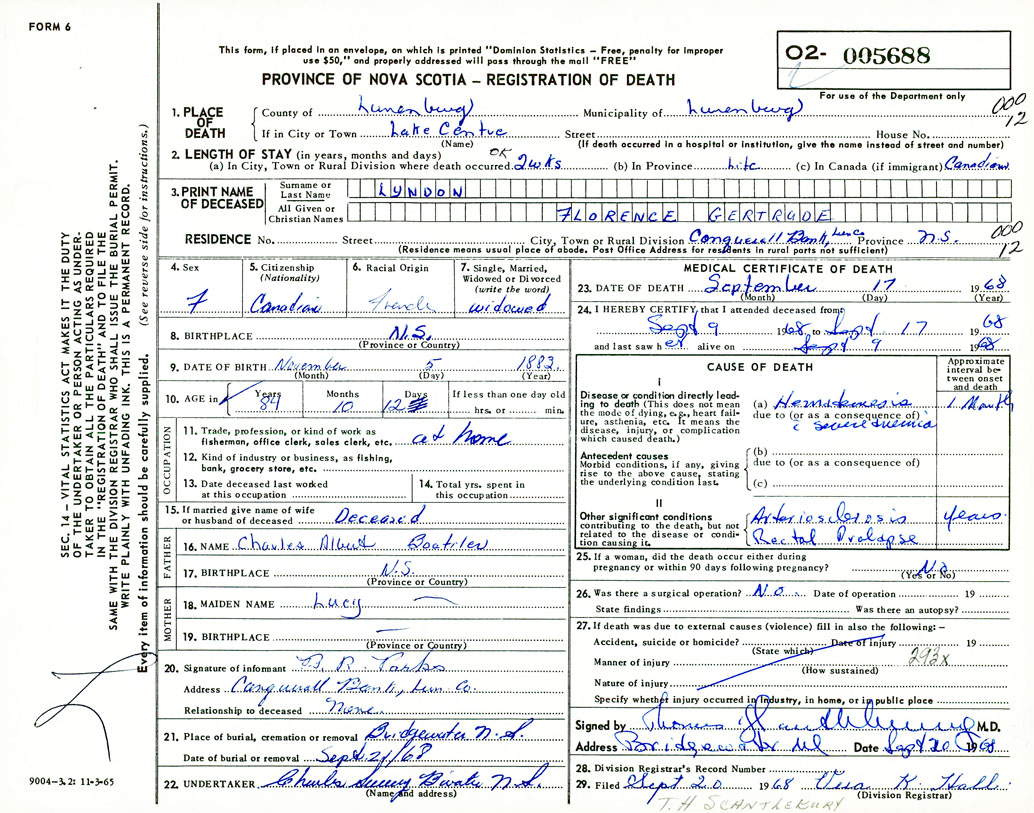 FORM 6
This form, if placed in an envelope, on which is printed "Dominion Statistics – Free, penalty for improper
use $50," and properly addressed will pass through the mail "FREE"
PROVINCE OF NOVA SCOTIA – REGISTRATION OF DEATH
O2- 005688
For use of the Department only
000
12
1. PLACE OF DEATH
County of Lunenburg Municipality of Lunenburg
If in City or Town Lake Centre Street House No.
(Name) (If death occurred in a hospital or institution, give the name instead of street and number)
2. LENGTH OF STAY (in years, months and days) OK
(a) In City, Town or Rural Division where death occurred 2 wks (b) In Province Life (c) In Canada (if immigrant) Canadian
3. PRINT NAME OF DECEASED
Surname or Last Name LYNDON
All Given or Christian Names FLORENCE GERTRUDE
RESIDENCE No. Street City, Town or Rural Division Conquerall Bank, Lun Co Province N.S.
000
12
(Residence means usual place of abode. Post Office Address for residents in rural parts not sufficient)
4. Sex F
5. Citizenship (Nationality) Canadian
6. Racial Origin French
7. Single, Married, Widowed or Divorced (write the word) widowed
8. BIRTHPLACE N.S.
(Province or Country)
9. DATE OF BIRTH November 5 1883
(Month) (Day) (Year)
10. AGE in Years 84 Months 10 Days 12 If less than one day old hrs. or min.
OCCUPATION
11. Trade, profession, or kind of work as fisherman, office clerk, sales clerk, etc. at home
12. Kind of industry or business, as fishing, bank, grocery store, etc.
13. Date deceased last worked at this occupation
14. Total yrs. spent in this occupation
15. If married give name of wife or husband of deceased Deceased
FATHER
16. NAME Charles Albert
17. BIRTHPLACE N.S.
(Province or Country)
MOTHER
18. MAIDEN NAME Lucy —
19. BIRTHPLACE —
(Province or Country)
20. Signature of informant
Address Conquerall Bank, Lun Co.
Relationship to deceased None
21. Place of burial, cremation or removal Bridgewater N.S.
Date of burial or removal Sept. 21/68
22. UNDERTAKER Charles N.S.
(Name and address)
MEDICAL CERTIFICATE OF DEATH
23. DATE OF DEATH September 17 1968
(Month) (Day) (Year)
24. I HEREBY CERTIFY, that I attended deceased from:
Sept 9 1968, to Sept 17 1968
and last saw her alive on Sept 9 1968
CAUSE OF DEATH
Approximate interval between onset and death
I
Disease or condition directly leading to death (This does not mean the mode of dying, e.g., heart failure, asthenia, etc. It means the disease, injury, or complication which caused death.)
(a) Hematemesis 1 Month
due to (or as a consequence of)
c severe anemia
Antecedent causes
Morbid conditions, if any, giving rise to the above cause, stating the underlying condition last.
(b)
due to (or as a consequence of)
(c)
II
Other significant conditions contributing to the death, but not related to the disease or condition causing it.
Arteriosclerosis years
Rectal Prolapse
25. If a woman, did the death occur either during
pregnancy or within 90 days following pregnancy? No
(Yes or No)
26. Was there a surgical operation? No Date of operation 19
State findings Was there an autopsy?
27. If death was due to external causes (violence) fill in also the following: –
Accident, suicide or homicide? Date of injury 19
(State which)
Manner of injury 293x
(How sustained)
Nature of injury
Specify whether injury occurred in Industry, in home, or in public place
Signed by Thomas Scantlebury M.D.
Address Bridgewater NS Date Sept 20 1968
28. Division Registrar's Record Number
29. Filed Sept 20 1968 Vera K. Hall
(Division Registrar)
T. H SCANTLEBURY
SEC. 14 – VITAL STATISTICS ACT MAKES IT THE DUTY
OF THE UNDERTAKER OR PERSON ACTING AS UNDER-
TAKER TO OBTAIN ALL THE PARTICULARS REQUIRED
IN THE "REGISTRATION OF DEATH" AND TO FILE THE
SAME WITH THE DIVISION REGISTRAR WHO SHALL ISSUE THE BURIAL PERMIT.
WRITE PLAINLY WITH UNFADING INK. THIS IS A PERMANENT RECORD.
Every item of information should be carefully supplied. (See reverse side for instructions.)
9004–3.2: 11-3-65